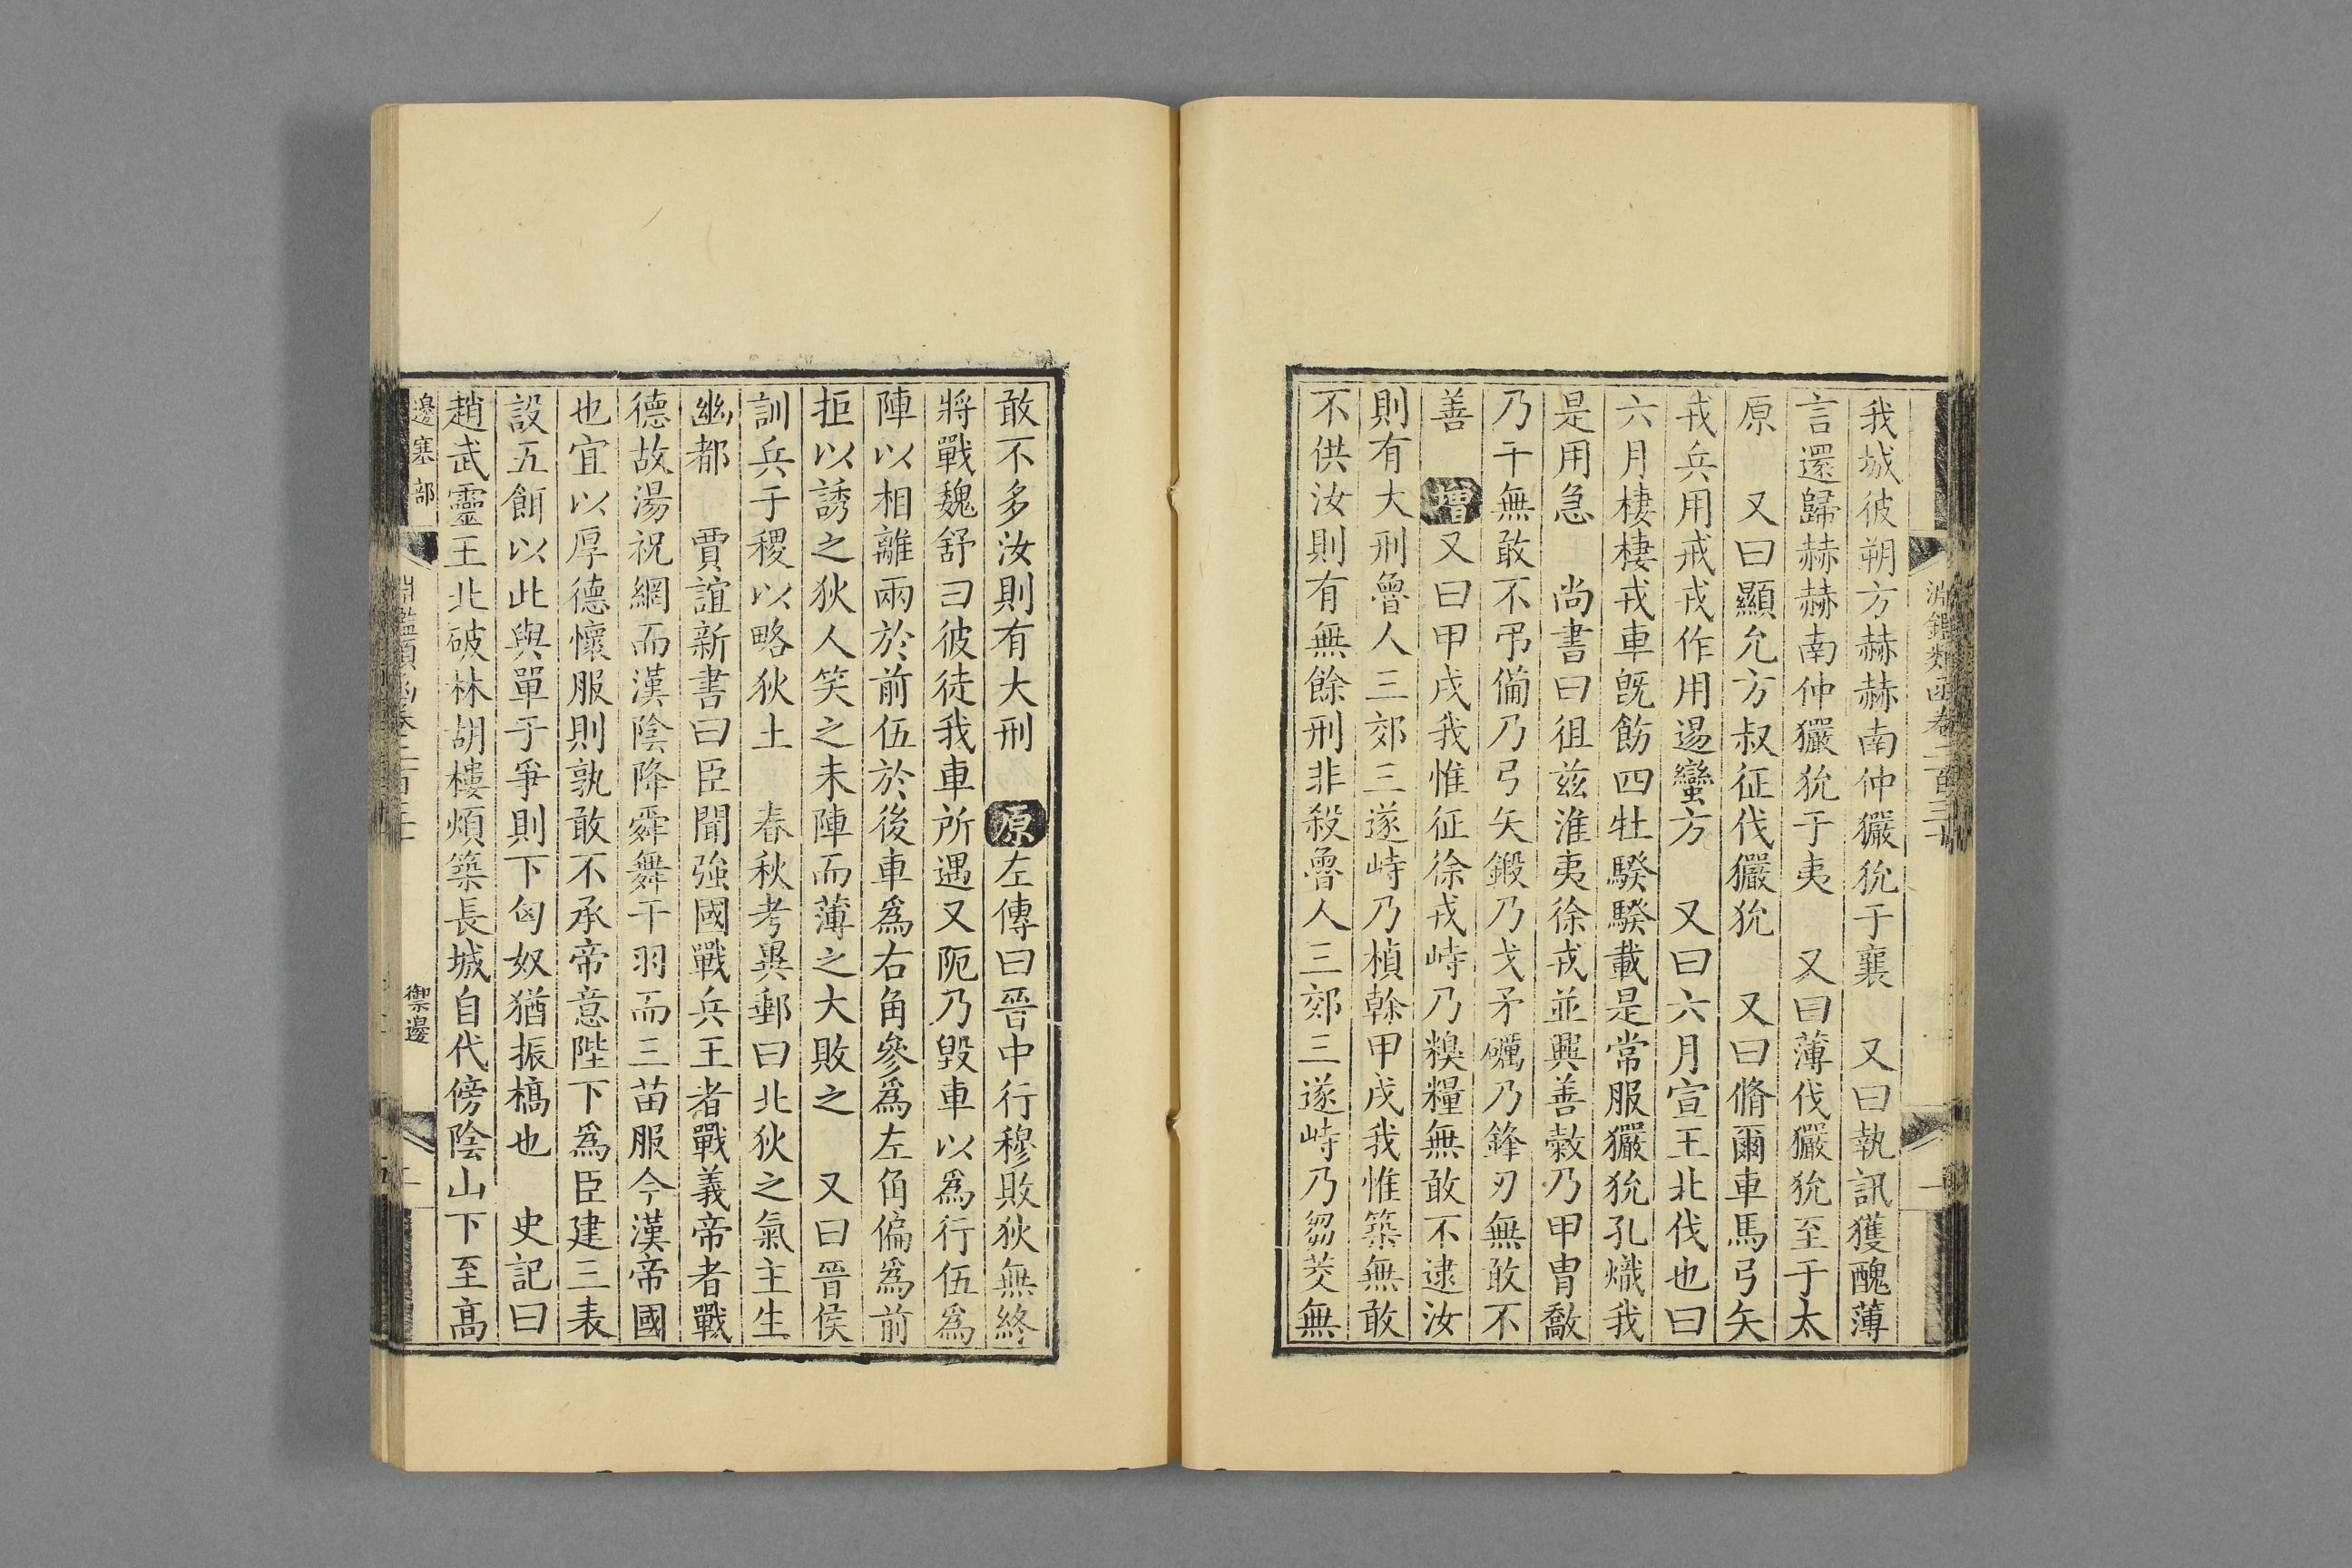 我城彼朔方赫赫南仲玁狁于襄　又曰執訊獲醜薄
言還歸赫赫南仲玁狁于夷　又曰薄伐玁狁至于太
原　又曰顯允方叔征伐玁狁　又曰脩爾車馬弓矢
戎兵用戒戎作用逷蠻方　又曰六月宣王北伐也曰
六月棲棲戎車旣飭四牡騤騤載是常服玁狁孔熾我
是用急　尚書曰徂茲淮夷徐戎並興善敹乃甲胄敿
乃干無敢不弔備乃弓矢鍛乃戈矛礪乃鋒刃無敢不
善　增又曰甲戌我惟征徐戎峙乃糗糧無敢不逮汝
則有大刑魯人三郊三遂峙乃楨榦甲戌我惟築無敢
不供汝則有無餘刑非殺魯人三郊三遂峙乃芻茭無
敢不多汝則有大刑　原左傳曰晉中行穆敗狄無終
將戰魏舒曰彼徒我車所遇又阨乃毀車以爲行伍爲
陣以相離兩於前伍於後車爲右角參爲左角偏爲前
拒以誘之狄人笑之未陣而薄之大敗之　又曰晉侯
訓兵于稷以略狄土　春秋考異郵曰北狄之氣主生
幽都　賈誼新書曰臣聞強國戰兵王者戰義帝者戰
德故湯祝網而漢陰降舜舞干羽而三苗服今漢帝國
也宜以厚德懷服則孰敢不承帝意陛下爲臣建三表
設五餌以此與單于爭則下匈奴猶振槁也　史記曰
趙武靈王北破林胡樓煩築長城自代傍陰山下至高
邊塞部
御邊